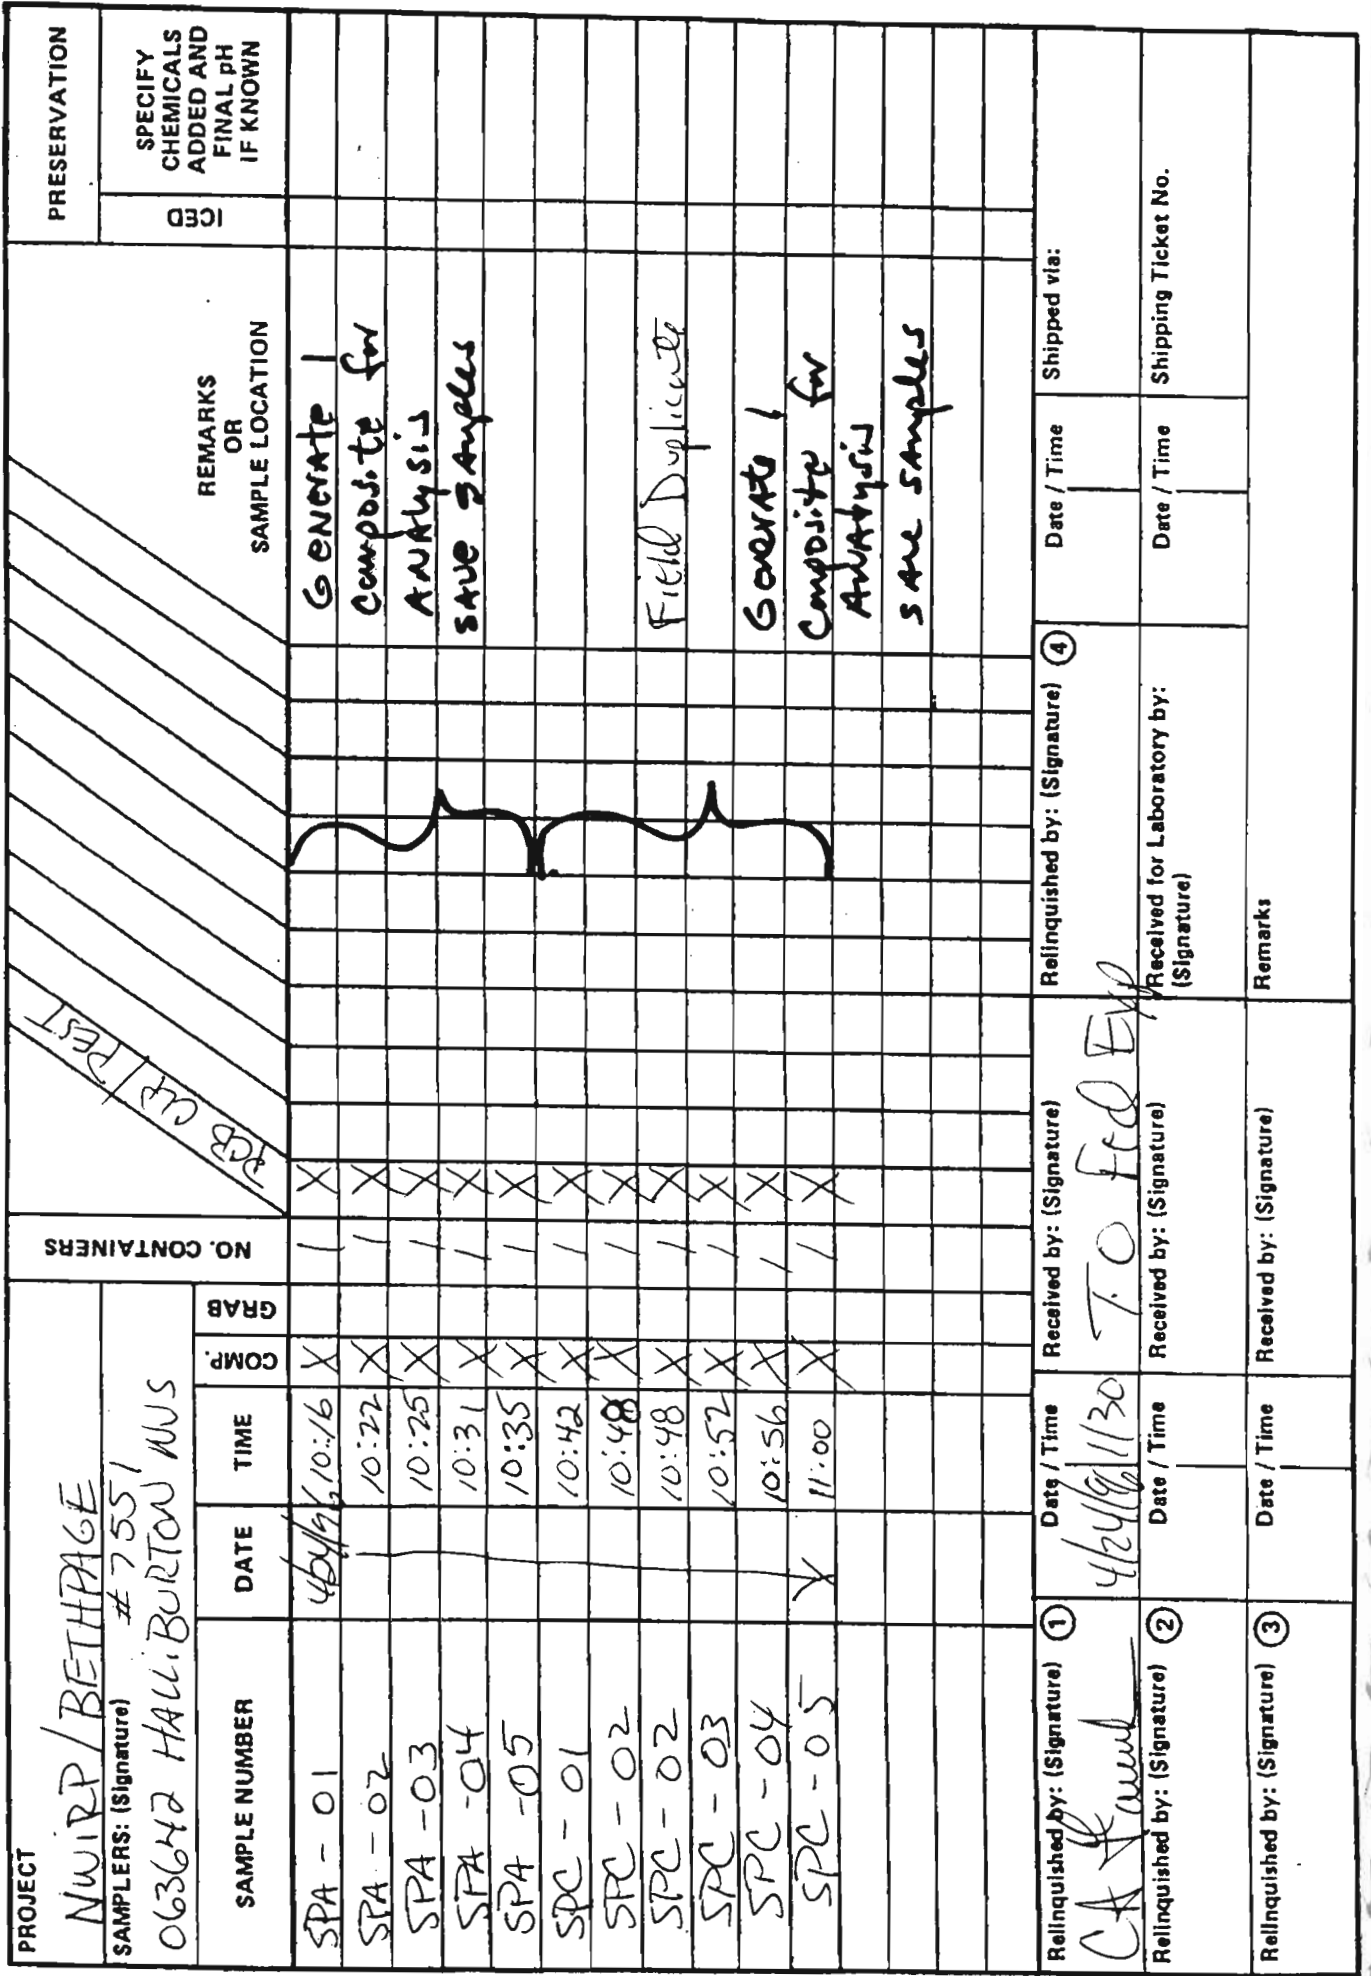 PROJECT
NWIRP/BETHPAGE
SAMPLERS: (Signature) # 7551
063642 HALLIBURTON NUS
NO. CONTAINERS
PCB CLP/PEST
REMARKS
OR
SAMPLE LOCATION
PRESERVATION
ICED
SPECIFY
CHEMICALS
ADDED AND
FINAL pH
IF KNOWN
SAMPLE NUMBER DATE TIME COMP. GRAB
SPA - 01 4/24/96 10:16 X 1 X GENERATE 1
SPA - 02 10:22 X 1 X Composite for
SPA - 03 10:25 X 1 X ANALYSIS
SPA - 04 10:31 X 1 X SAVE SAMPLES
SPA - 05 10:35 X 1 X
SPC - 01 10:42 X 1 X
SPC - 02 10:48 X 1 X
SPC - 02 10:48 X 1 X Field Duplicate
SPC - 03 10:52 X 1 X
SPC - 04 10:56 X 1 X Generate 1
SPC - 05 11:00 X 1 X Composite for
ANALYSIS
SAVE SAMPLES
Relinquished by: (Signature) ① Date / Time Received by: (Signature) Relinquished by: (Signature) ④ Date / Time Shipped via:
4/24/96 1130 TO Fed Exp
Relinquished by: (Signature) ② Date / Time Received by: (Signature) Received for Laboratory by: Date / Time Shipping Ticket No.
(Signature)
Relinquished by: (Signature) ③ Date / Time Received by: (Signature) Remarks